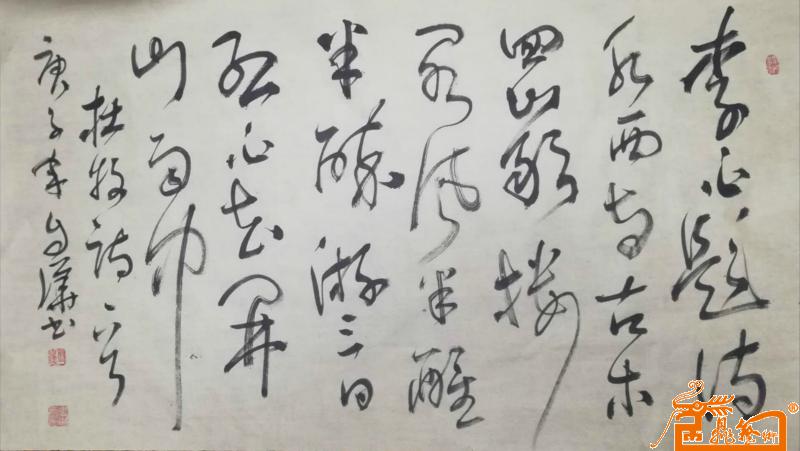 李白題诗
水西寺古木
回巖楼
阁风半醒
半醉游三日
红白花開
山雨中
杜牧诗一首
庚子年